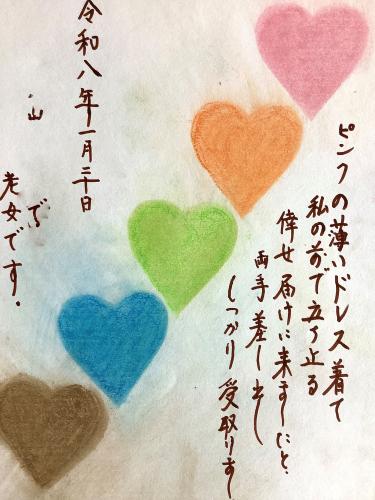 ピンクの薄いドレス着て
私の前で立ち止る
倖せ届けに来ましたと、
両手差し出し
しっかり受取りまし
令和八年一月三十日
山
で
老女です。